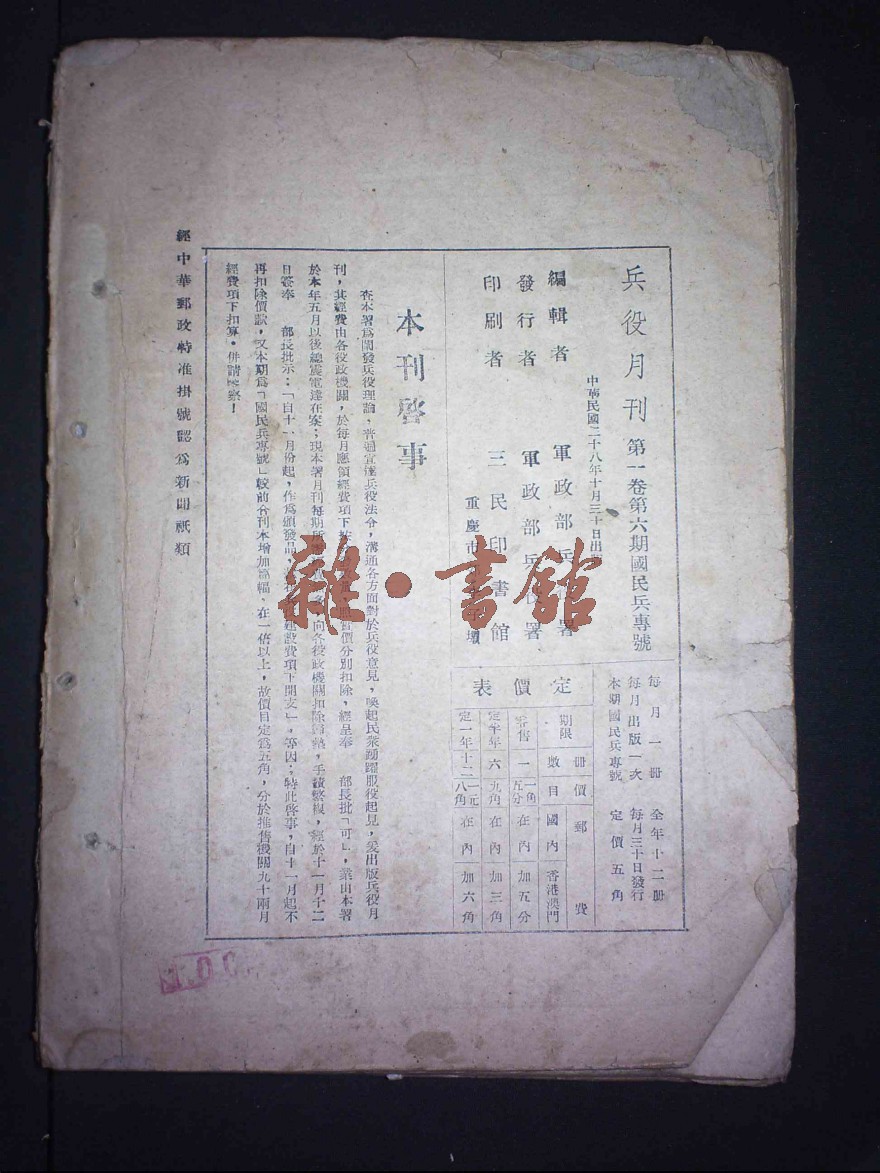 兵役月刊 第一卷第六期國民兵專號
中華民國二十八年十月三十日出
編輯者 軍政部兵 署
發行者 軍政部兵役署
印刷者 三民印書館
重慶市
每月一冊 全年十二冊
每月出版一次 每月三十日發行
本期國民兵專號 定價五角
定價表
期限 冊數 價目 郵費 國內 香港澳門
零售 一 一角五分 在內 加五分
定半年 六 九角 在內 加三角
定一年 十二 一元八角 在內 加六角
本刊啓事
查本署爲闡發兵役理論,普遍宣達兵役法令,溝通各方面對於兵役意見,喚起民衆踴躍服役起見,爰出版兵役月
刊,其經費由各役政機關,於每月應領經費項下 價分別扣除,經呈奉 部長批「可」,業由本署
於本年五月以後總震電達在案;現本署月刊每期所 向各役政機關扣除 手續繁複,經於十一月十二
日簽奉 部長批示:「自十一月份起,作爲頒發品, 建設費項下開支」,等因;特此啓事,自十一月起不
再扣除價款,又本期爲「國民兵專號」較前各刊本增加篇幅,在一倍以上,故價目定爲五角,分於推售機關九十兩月
經費項下扣算,併請 察!
經中華郵政特准掛號認爲新聞紙類
雜·書館